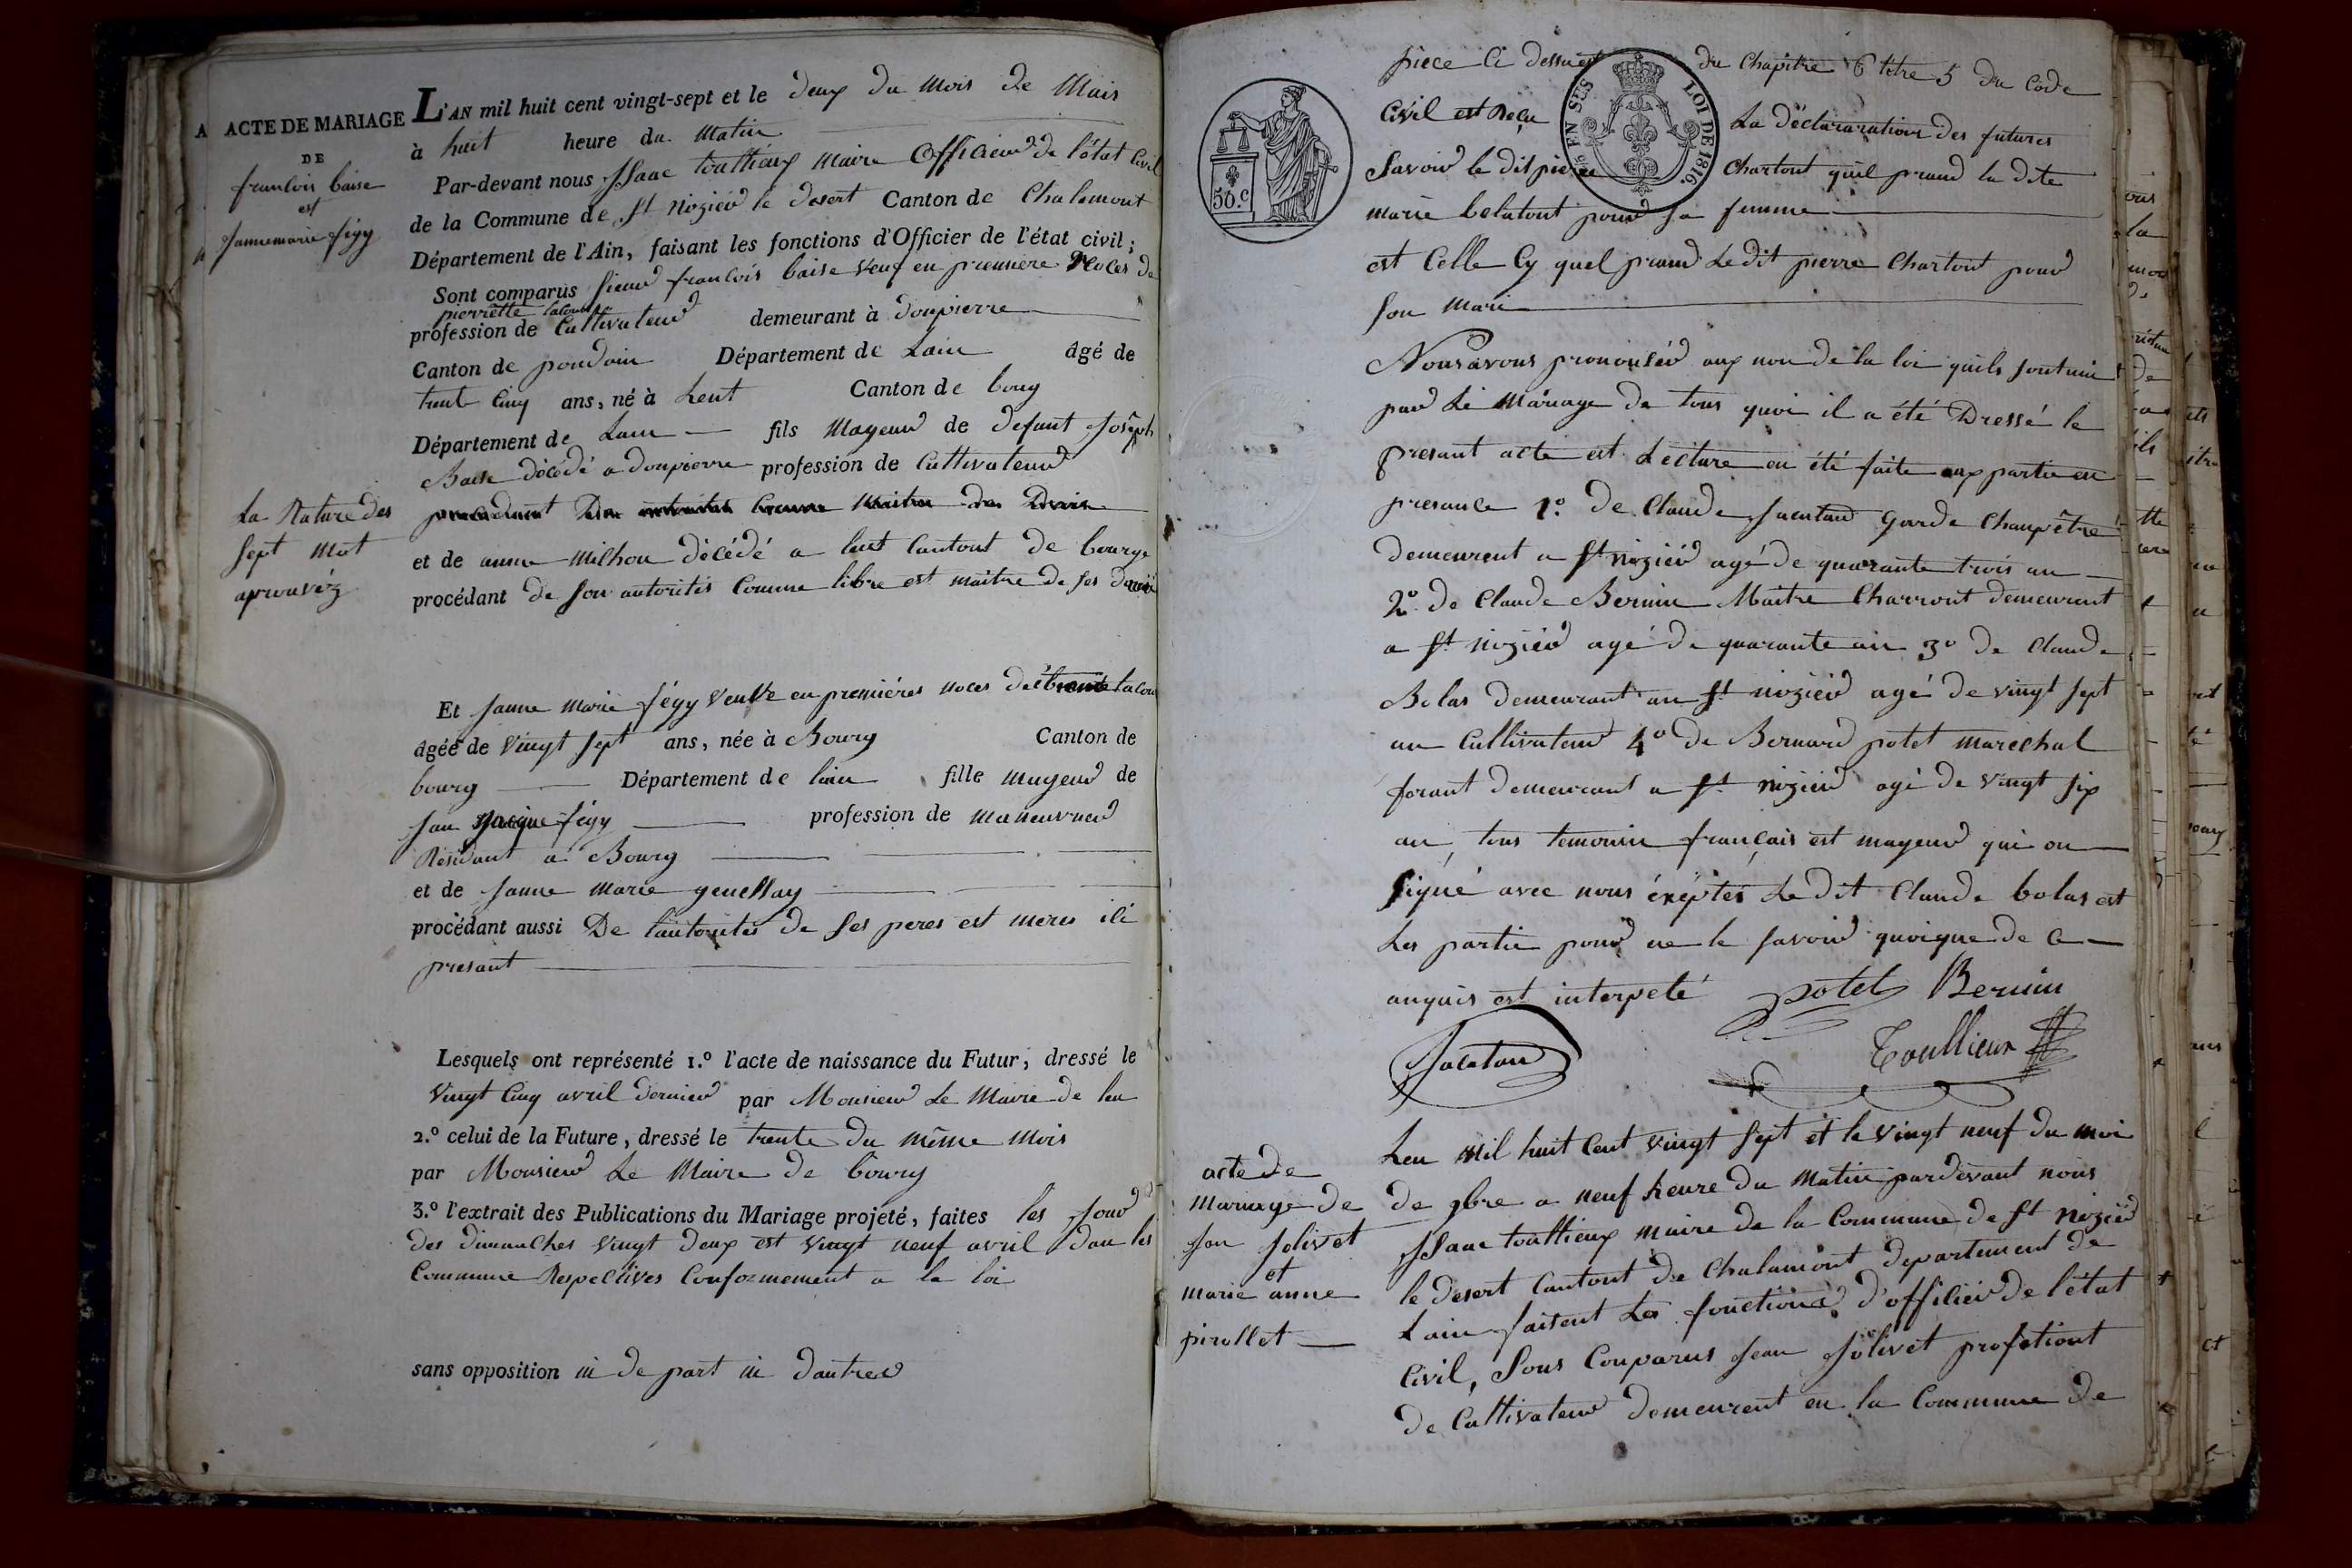 A ACTE DE MARIAGE
DE
francois baise
est
Jannemarie figy
La Nature des
Sept mot
aprouvéz
L'AN mil huit cent vingt-sept et le deux du mois de Mais
à huit heure du matin
Par-devant nous Isaac toullieux maire Officier de l'état Civil
de la Commune de St Nizier le desert Canton de Chalamont
Département de l'Ain, faisant les fonctions d'Officier de l'état civil;
Sont comparus sieur francois baise veuf en premiere Noces de
pierrette
profession de Cultivateur demeurant à donpierre
Canton de pondain Département de Lain âgé de
trente Cinq ans, né à Lent Canton de bourg
Département de Lain fils Mageur de defunt Joseph
Baise décédé a donpierre profession de Cultivateur
et de anne milhon décédé a lent Cantont de bourge
procédant de son autorités Comme libre est maitre de ses
Et Janne Marie fégy veuve en premiéres noces de
âgée de vingt sept ans, née à Bourg Canton de
bourg Département de lain fille mageur de
Jan figy profession de maneuvrier
Résidant a Bourg
et de Janne Marie
procédant aussi De lautorités de ses peres est meres ili
presant
Lesquels ont représenté 1.º l'acte de naissance du Futur, dressé le
vingt Cinq avril dernier par Monsieur Le Maire de len
2.º celui de la Future, dressé le trente du même mois
par Monsieur Le Maire de bourg
3.º l'extrait des Publications du Mariage projeté, faites les Jour
des dimanches vingt deux est vingt neuf avril dan les
Commune Respectives Conformement a la loi
sans opposition ni de part ni dautres
piece Ci dessu est du Chapitre 6 titre 5 du Code
Civil est Reçu La déclararation des futures
Savoir le dit pierre Chartont quil prand la dite
marie belatont pour sa femme
est Celle Cy quel prand Le dit pierre Chartont pour
son mari
50.c
EN SUS
LOI DE 1816.
Nous avons prononséd aux non de la loi quils sont unit
par Le Mariage de tous quoi il a été Dressé le
presant acte est Lecture en été faite aux partie en
presance 1º. De Claude Jacatan Garde Champêtre
demeurent a St nizier agé de quarante trois an
2º de Claude Bernin Maitre Charront demeurent
a St nizier agé de quarante an 3º de Claude
Bolas demeurant au St nizier agé de vingt sept
an Cultivateur 4º de Bernard potet marechal
ferant demeurant a St nizier agé de vingt six
an, tous temonin français est mageur qui on
signé avec nous éxeptes Le dit Claude bolas est
Les partie pour ne le savoir quoique de Ce
anquis est interpelé potet Bernin
Jacatan Toullieux
acte de
mariage de
Jan Jolivet
et
marie anne
pirollet
Lan mil huit Cent vingt sept et le vingt neuf du moi
de 9bre a neuf heure du matin pardevant nous
Isaac toullieux maire de la Commune de St Nizier
le desert Cantont de Chalamont departement de
Lain faisent Les fonctions d'offisier de l'état
Civil, Sous Conparus Jean Jolivet profetiont
de Cultivateur demeurent en la Commune de